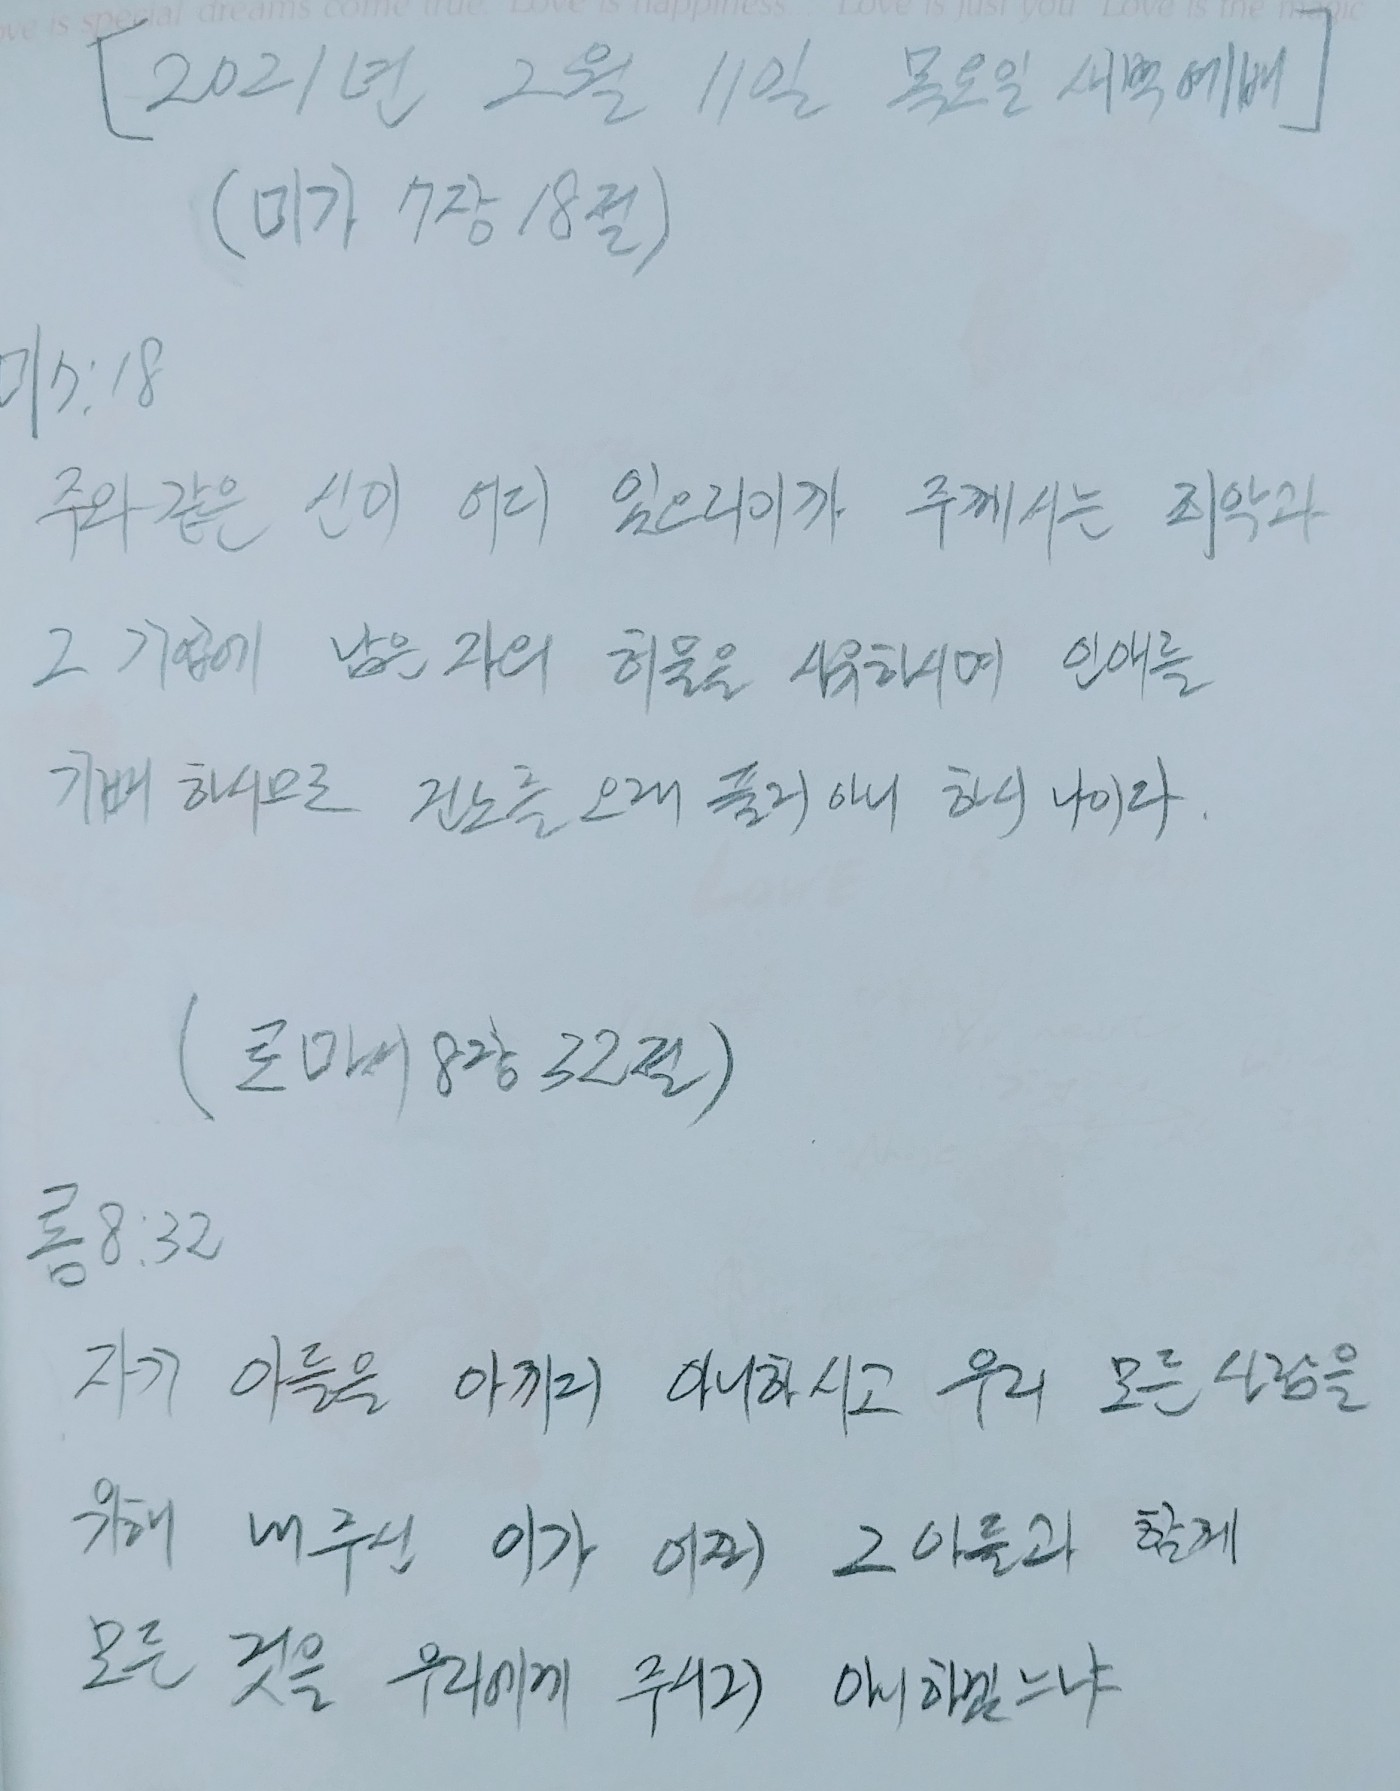 ove is special dreams come true. Love is happiness Love is just you Love is the magic
[2021년 2월 11일 목요일 새벽예배]
(미가 7장 18절)
미7:18
주와 같은 신이 어디 있으리이까 주께서는 죄악과
그 기업에 남은 자의 허물을 사유하시며 인애를
기뻐 하시므로 진노를 오래 품지 아니 하시 나이다.
(로마서 8장 32절)
롬8:32
자기 아들을 아끼지 아니하시고 우리 모든 사람을
위해 내주신 이가 어찌 그 아들과 함께
모든 것을 우리에게 주시지 아니하겠느냐